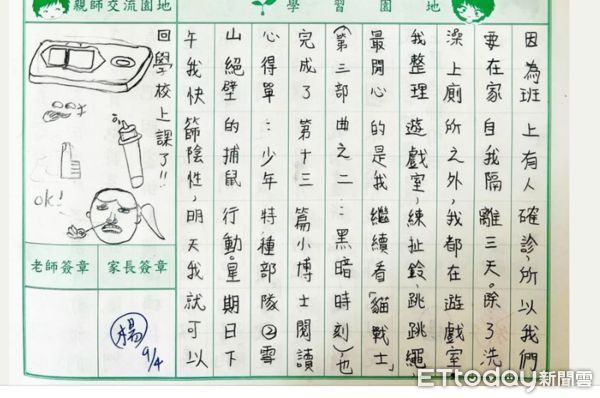 親師交流園地
學習園地
因為班上有人確診,所以我們
要在家自我隔離三天。除了洗
澡上廁所之外,我都在遊戲室
我整理遊戲室,練扯鈴,跳跳繩,
最開心的是我繼續看「貓戰士」
(第三部曲之二:黑暗時刻)也
完成了第十三篇小博士閱讀
心得單:少年特種部隊②雪
山絕壁的捕鼠行動。星期日下
午我快節陰性,明天我就可以
回學校上課了!!
ok!
老師簽章
家長簽章
楊
9/4
ETtoday新聞雲